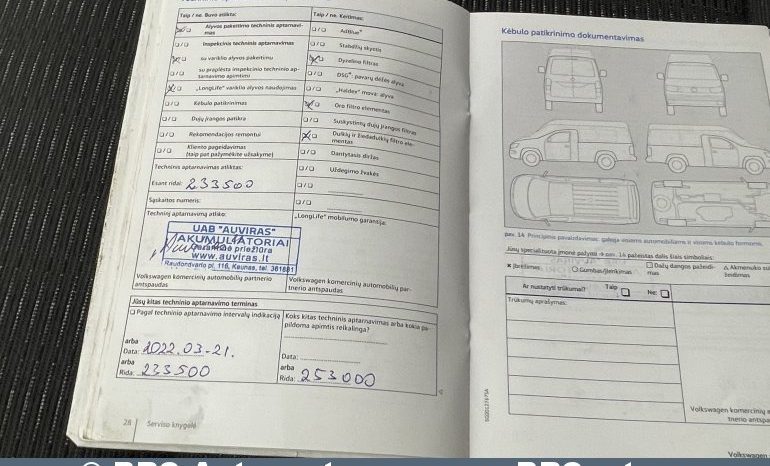 Taip / ne. Buvo atlikta:
Taip / ne. Keitimas:
Alyvos pakeitimo techninis aptarnavi-
mas
AdBlue®
Inspekcinis techninis aptarnavimas
Stabdžių skystis
su variklio alyvos pakeitimu
Dyzelino filtras
su praplėsta inspekcinio techninio ap-
tarnavimo apimtimi
DSG® pavarų dėžės alyva
„LongLife“ variklio alyvos naudojimas
„Haldex“ mova: alyva
Kėbulo patikrinimas
Oro filtro elementas
Dujų įrangos patikra
Suskystintų dujų įrangos filtras
Rekomendacijos remontui
Dulkių ir žiedadulkių filtro ele-
mentas
Kliento pageidavimas
(taip pat pažymėkite užsakyme)
Dantytasis diržas
Techninis aptarnavimas atliktas:
Uždegimo žvakės
Esant ridai: 233500
Sąskaitos numeris:
Techninį aptarnavimą atliko:
„LongLife“ mobilumo garantija:
UAB "AUVIRAS"
AKUMULIATORIAI
Garantinė priežiūra
www.auviras.lt
Raudondvario pl. 116, Kaunas, tel. 361881
Volkswagen komercinių automobilių partnerio
antspaudas
Volkswagen komercinių automobilių par-
tnerio antspaudas
Jūsų kitas techninio aptarnavimo terminas
Pagal techninio aptarnavimo intervalų indikaciją
Koks kitas techninis aptarnavimas arba kokia pa-
pildoma apimtis reikalinga?
arba
Data: 2022.03-21.
arba
Rida: 233500
Data:
arba
Rida: 253000
28 Serviso knygelė
Kėbulo patikrinimo dokumentavimas
pav. 14 Principinis pavaizdavimas: galioja visiems automobiliams ir visoms kėbulo formoms.
Jūsų specializuota įmonė pažymi → pav. 14 pažeistas dalis šiais simboliais:
× Įbrėžimas
○ Gumbas/įlenkimas
□ Dažų dangos pažeidi-
mas
△ Akmenuko su-
žeidimas
Ar nustatyti trūkumai?
Taip
Ne:
Trūkumų aprašymas:
Volkswagen komercinių a
tnerio antspa
Volkswagen